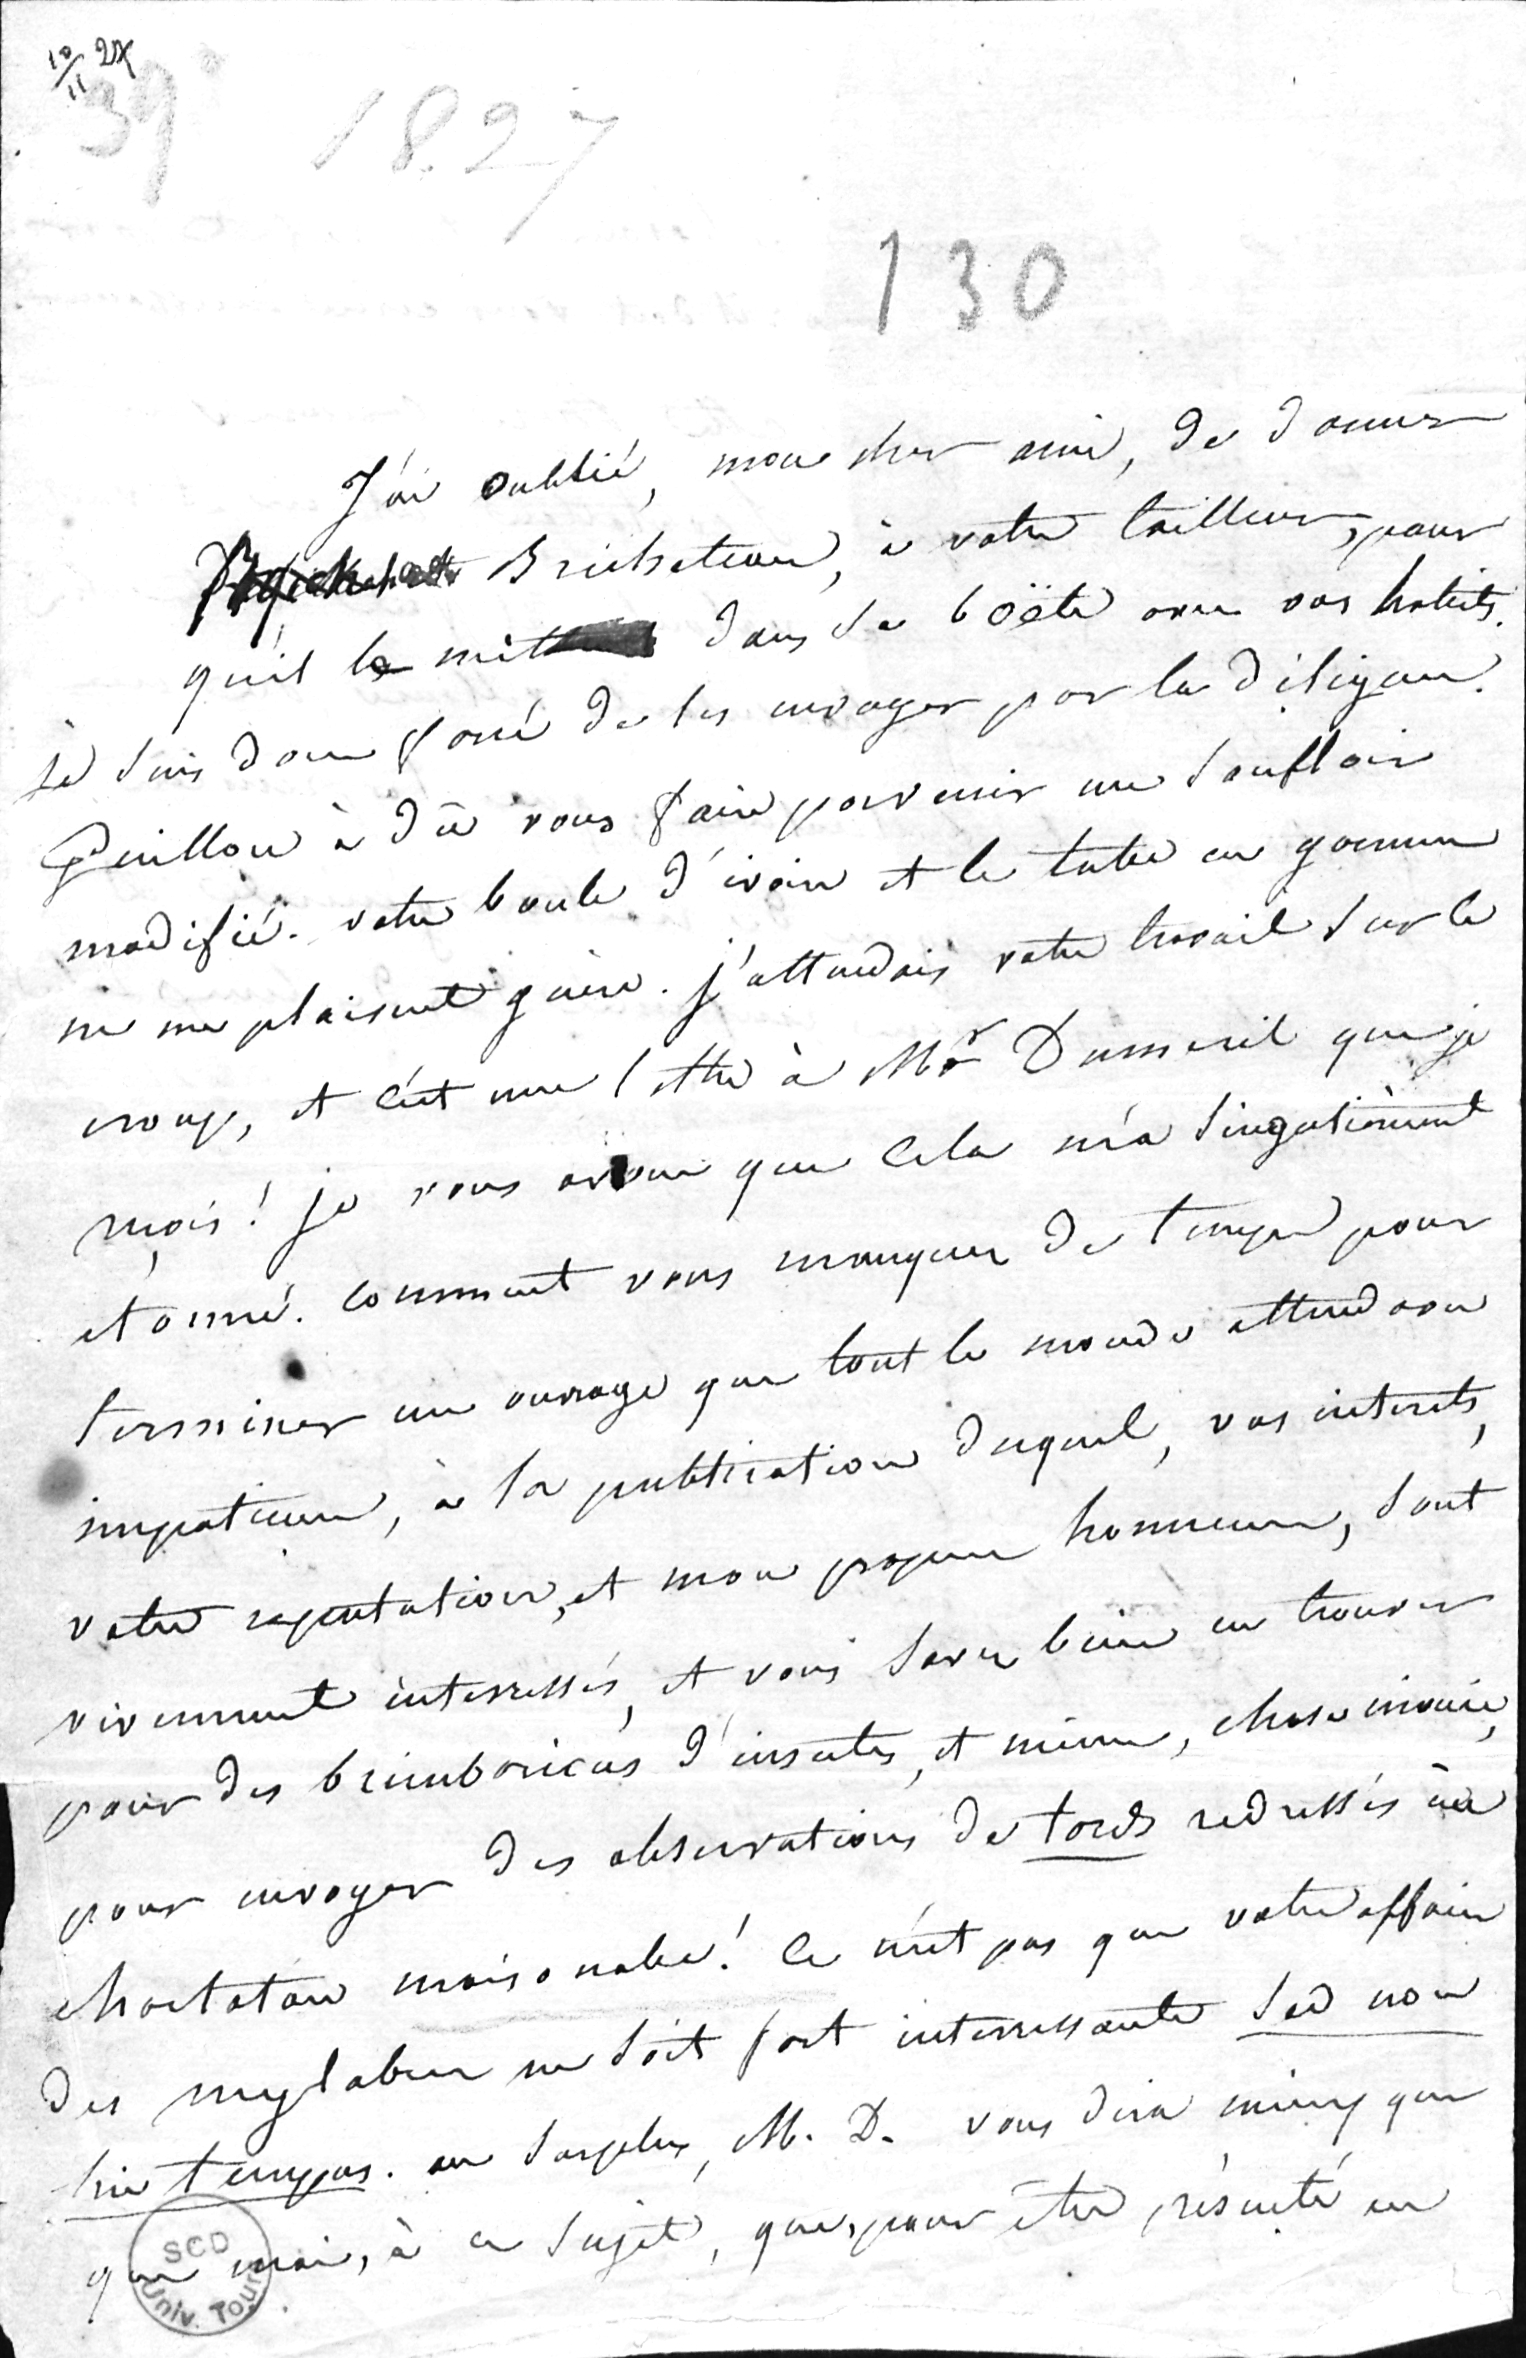 10/11 27
39
1827
130
J'ai oublié, mon cher ami, de donner
Bricheteau, à votre tailleur, pour
qu'il le mit dans la boëte avec vos habits.
je suis donc forcé de les envoyer par la diligence.
Guillon à dû vous faire parvenir un soufloir
modifié. votre boule d'ivoire et le tube en gomme
ne me plaisent guère. j'attendais votre travail sur le
croup, et c'est une lettre à Mr Dumeril que je
reçois! je vous avoue que cela m'a singulièrement
étonné. comment vous manquez de temps pour
terminer un ouvrage que tout le monde attend avec
impatience, à la publication duquel, vos interets,
votre reputation, et mon propre honneur, sont
vivement interressés, et vous savez bien en trouver
pour des brimborions d'insectes, et même, chose inouie,
pour envoyer des observations de tords redressés au
charlatan maisonabe! Ce n'est pas que votre affaire
des mylabres ne soit fort interressante sed non
hic tempus. au surplus, M. D. vous dira mieux que
que moi, à ce sujet, que, pour être présenté en
SCD
Univ. Tours